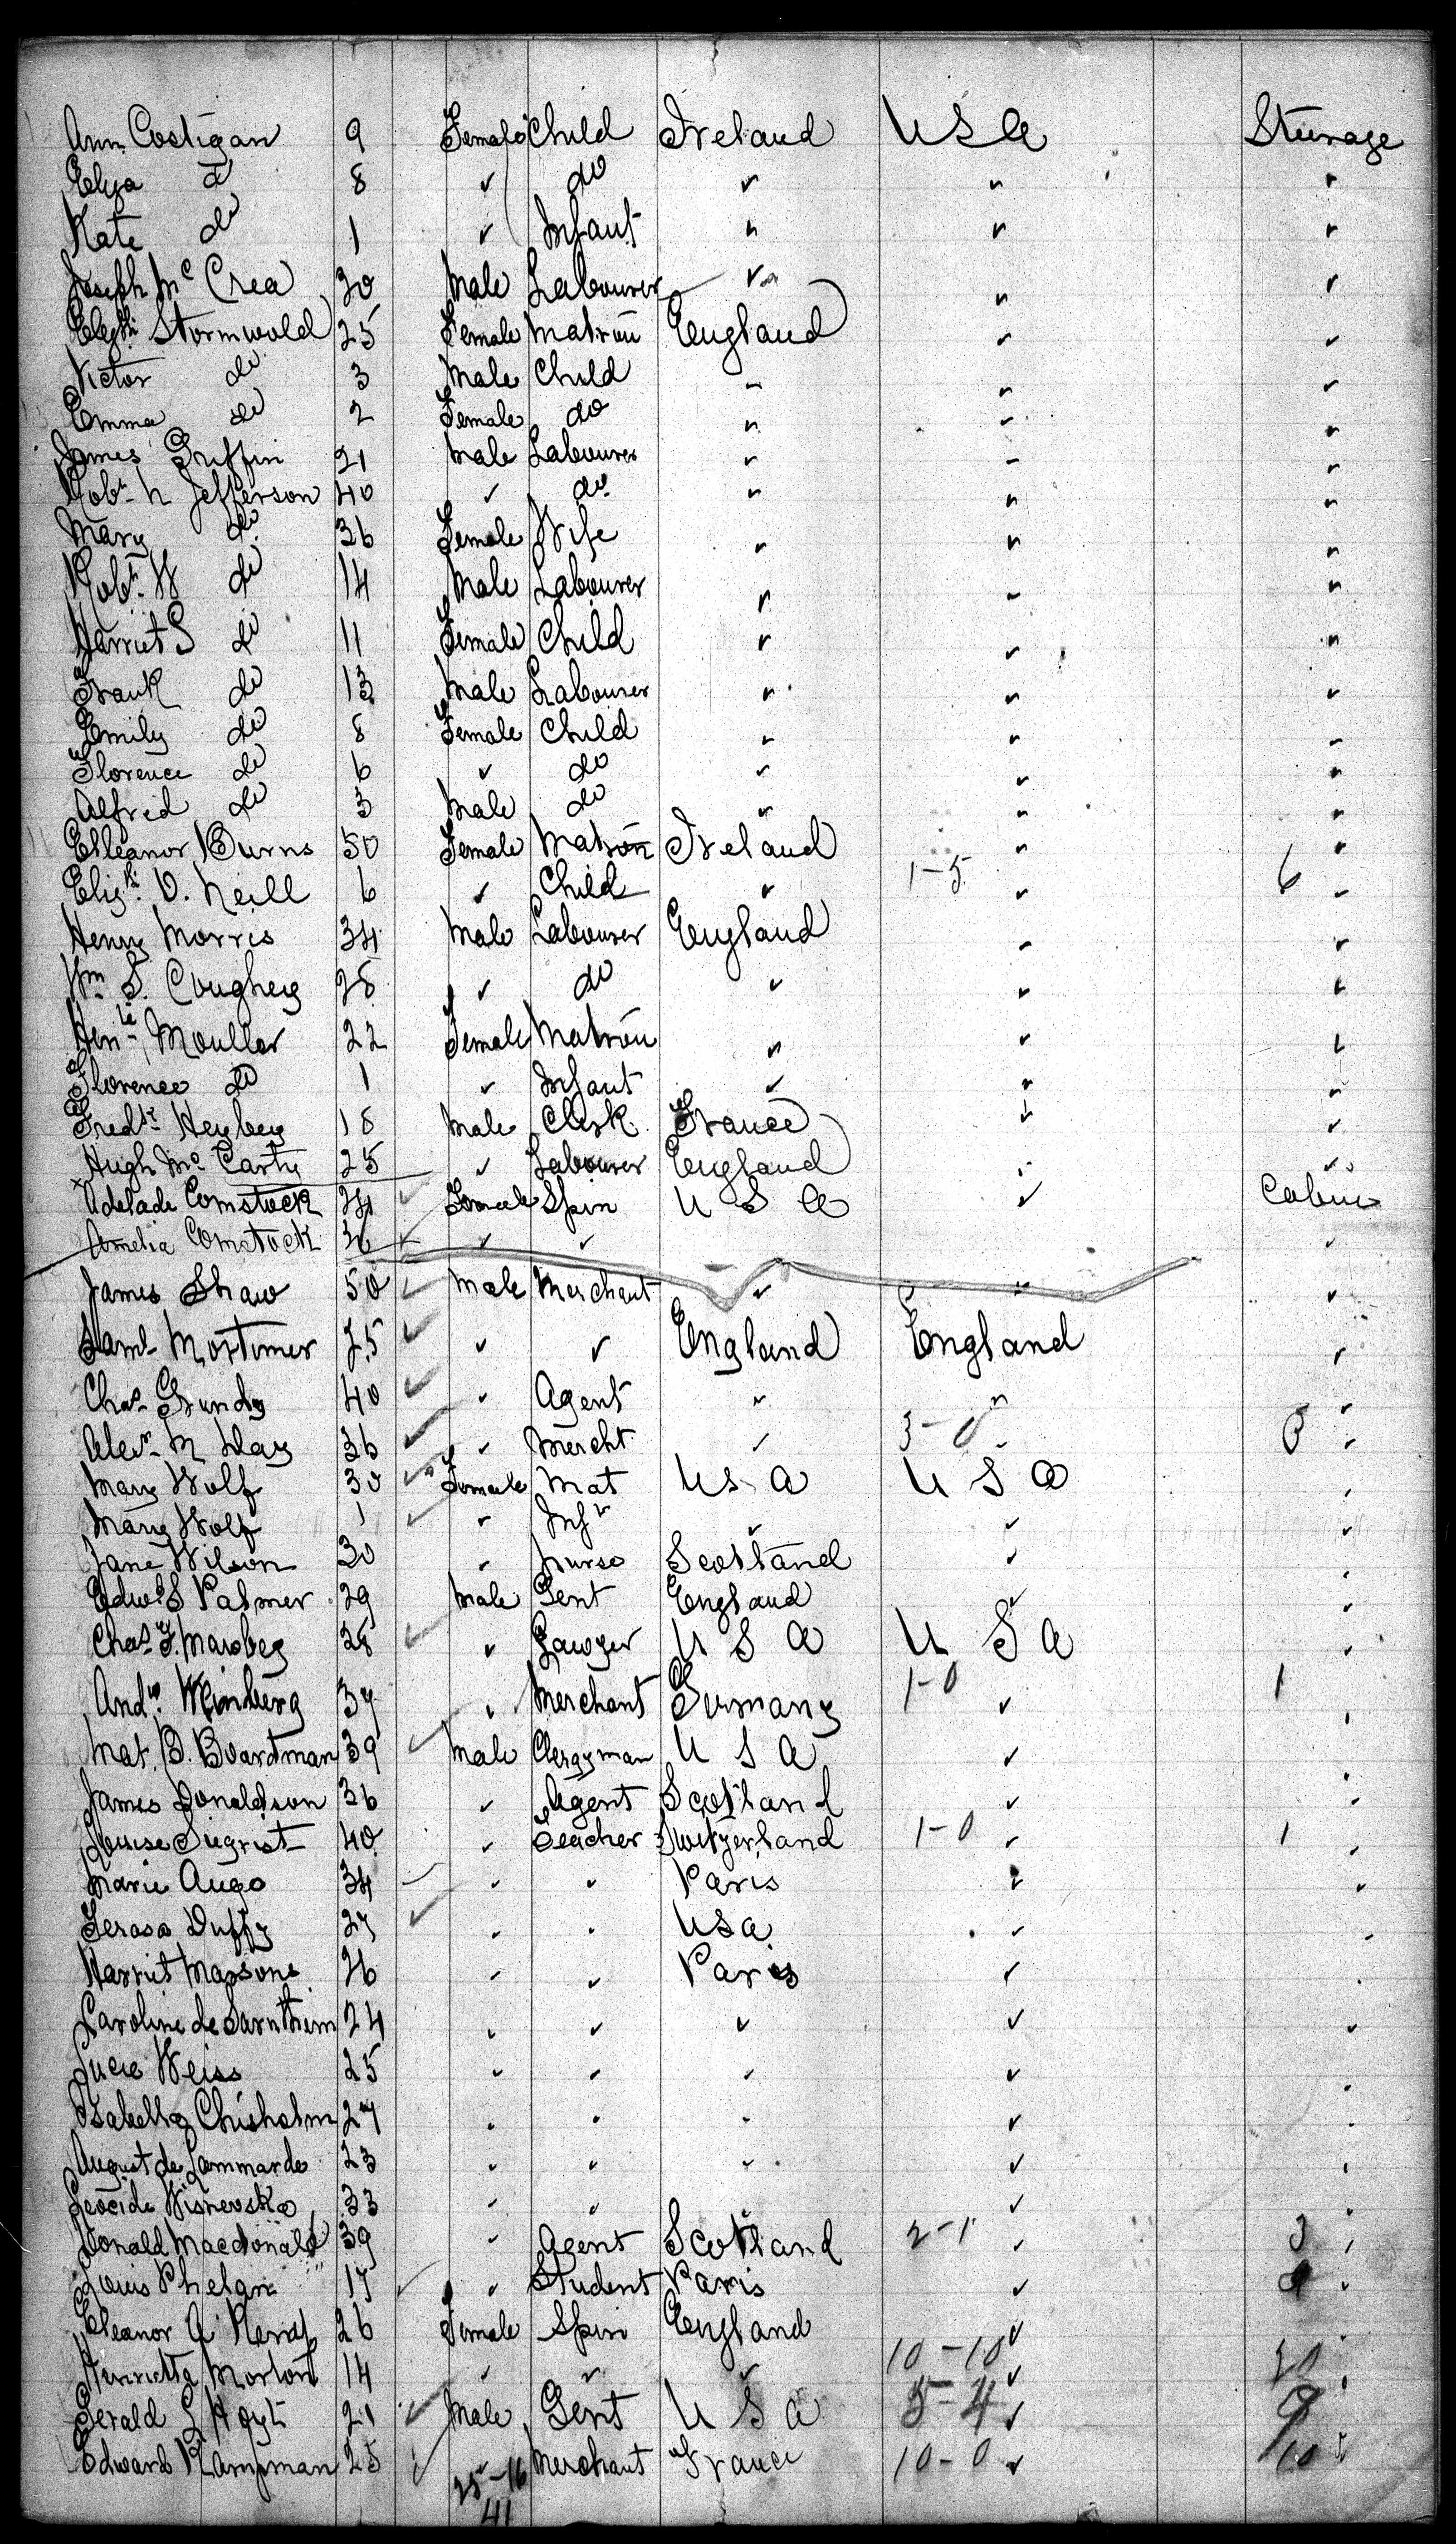 Ann Costigan 9 Female Child Ireland USA Steerage
Eliza do 8 " do " " "
Kate do 1 " Infant " " "
Joseph Mc Crea 30 Male Labourer " " "
Elizth Stormwold 25 Female Matron England " "
Victor do 3 Male Child " " "
Emma do 2 Female do " " "
James Griffin 21 Male Labourer " " "
Robt N Jefferson 40 " do " " "
Mary do 36 Female Wife " " "
Robt W do 14 Male Labourer " " "
Harriet S do 11 Female Child " " "
Frank do 13 Male Labourer " " "
Emily do 8 Female Child " " "
Florence do 6 " do " " "
Alfred do 3 Male do " " "
Elleanor Burns 50 Female Matron Ireland " "
Elizth O. Neill 6 " Child " 1-5 " 6 "
Henry Morris 34 Male Labourer England " "
Wm S. Coughey 28 " do " " "
Moullor 22 Female Matron " " "
Florence do 1 " Infant " " "
Fredk Heyberg 18 Male Clerk France " "
Hugh Mc Carty 25 " Labourer England " "
Adelade Comstock 34 Female Spin U S A " Cabin
Amelia Comstock 36 " " "
James Shaw 50 Male Merchant " " "
Saml Mortimer 25 " " England England "
Chas Grundy 40 " Agent " " "
Alexr M Hay 36 " Mercht " 3-0 3 "
Mary Wolf 30 Female Mat U S A U S A "
Mary Wolf 1 " Inft " " "
Jane Wilson 30 " Nurse Scotland " "
Edwd S Palmer 29 Male Gent England " "
Chas F. 28 " Lawyer U S A U S A "
Andw Weinberg 37 " Merchant Germany 1-0 " 1 "
Mat. B. Boardman 39 Male Clergyman U S A " "
James Donaldson 36 " Agent Scotland " "
Louise Siegrist 40 " Teacher Switzerland 1-0 " 1 "
Marie Augo 34 " " Paris " "
Terasa Duffy 27 " " USA " "
Harriet Massons 26 " " Paris " "
Caroline de Sarnthem 24 " " " " "
Lucie Weiss 25 " " " " "
Isabella Chisholm 27 " " " " "
August de Lammarde 23 " " " " "
Leocide Wisnevska 33 " " " " "
Donald Macdonald 39 " Agent Scotland 2-1 " 3 "
Louis Phelan 17 " Student Paris " "
Eleanor A 26 Female Spin England " "
Henrietta Morton 14 " " " 10-10 " 20 "
Gerald L Hoyt 21 Male Gent U S A 5-4 " 9 "
Edward Kampman 25 " Merchant France 10-0 " 10 "
25-16
41